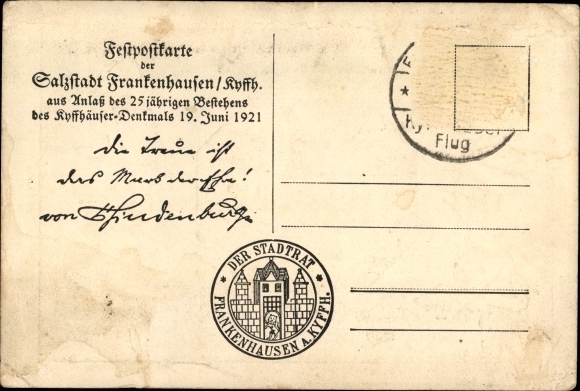 Festpostkarte
der
Salzstadt Frankenhausen/Kyffh.
aus Anlaß des 25jährigen Bestehens
des Kyffhäuser-Denkmals 19. Juni 1921
Die Treue ist
das Mark der Ehre!
von Hindenburg
Flug
DER STADTRAT
FRANKENHAUSEN A. KYFFH.